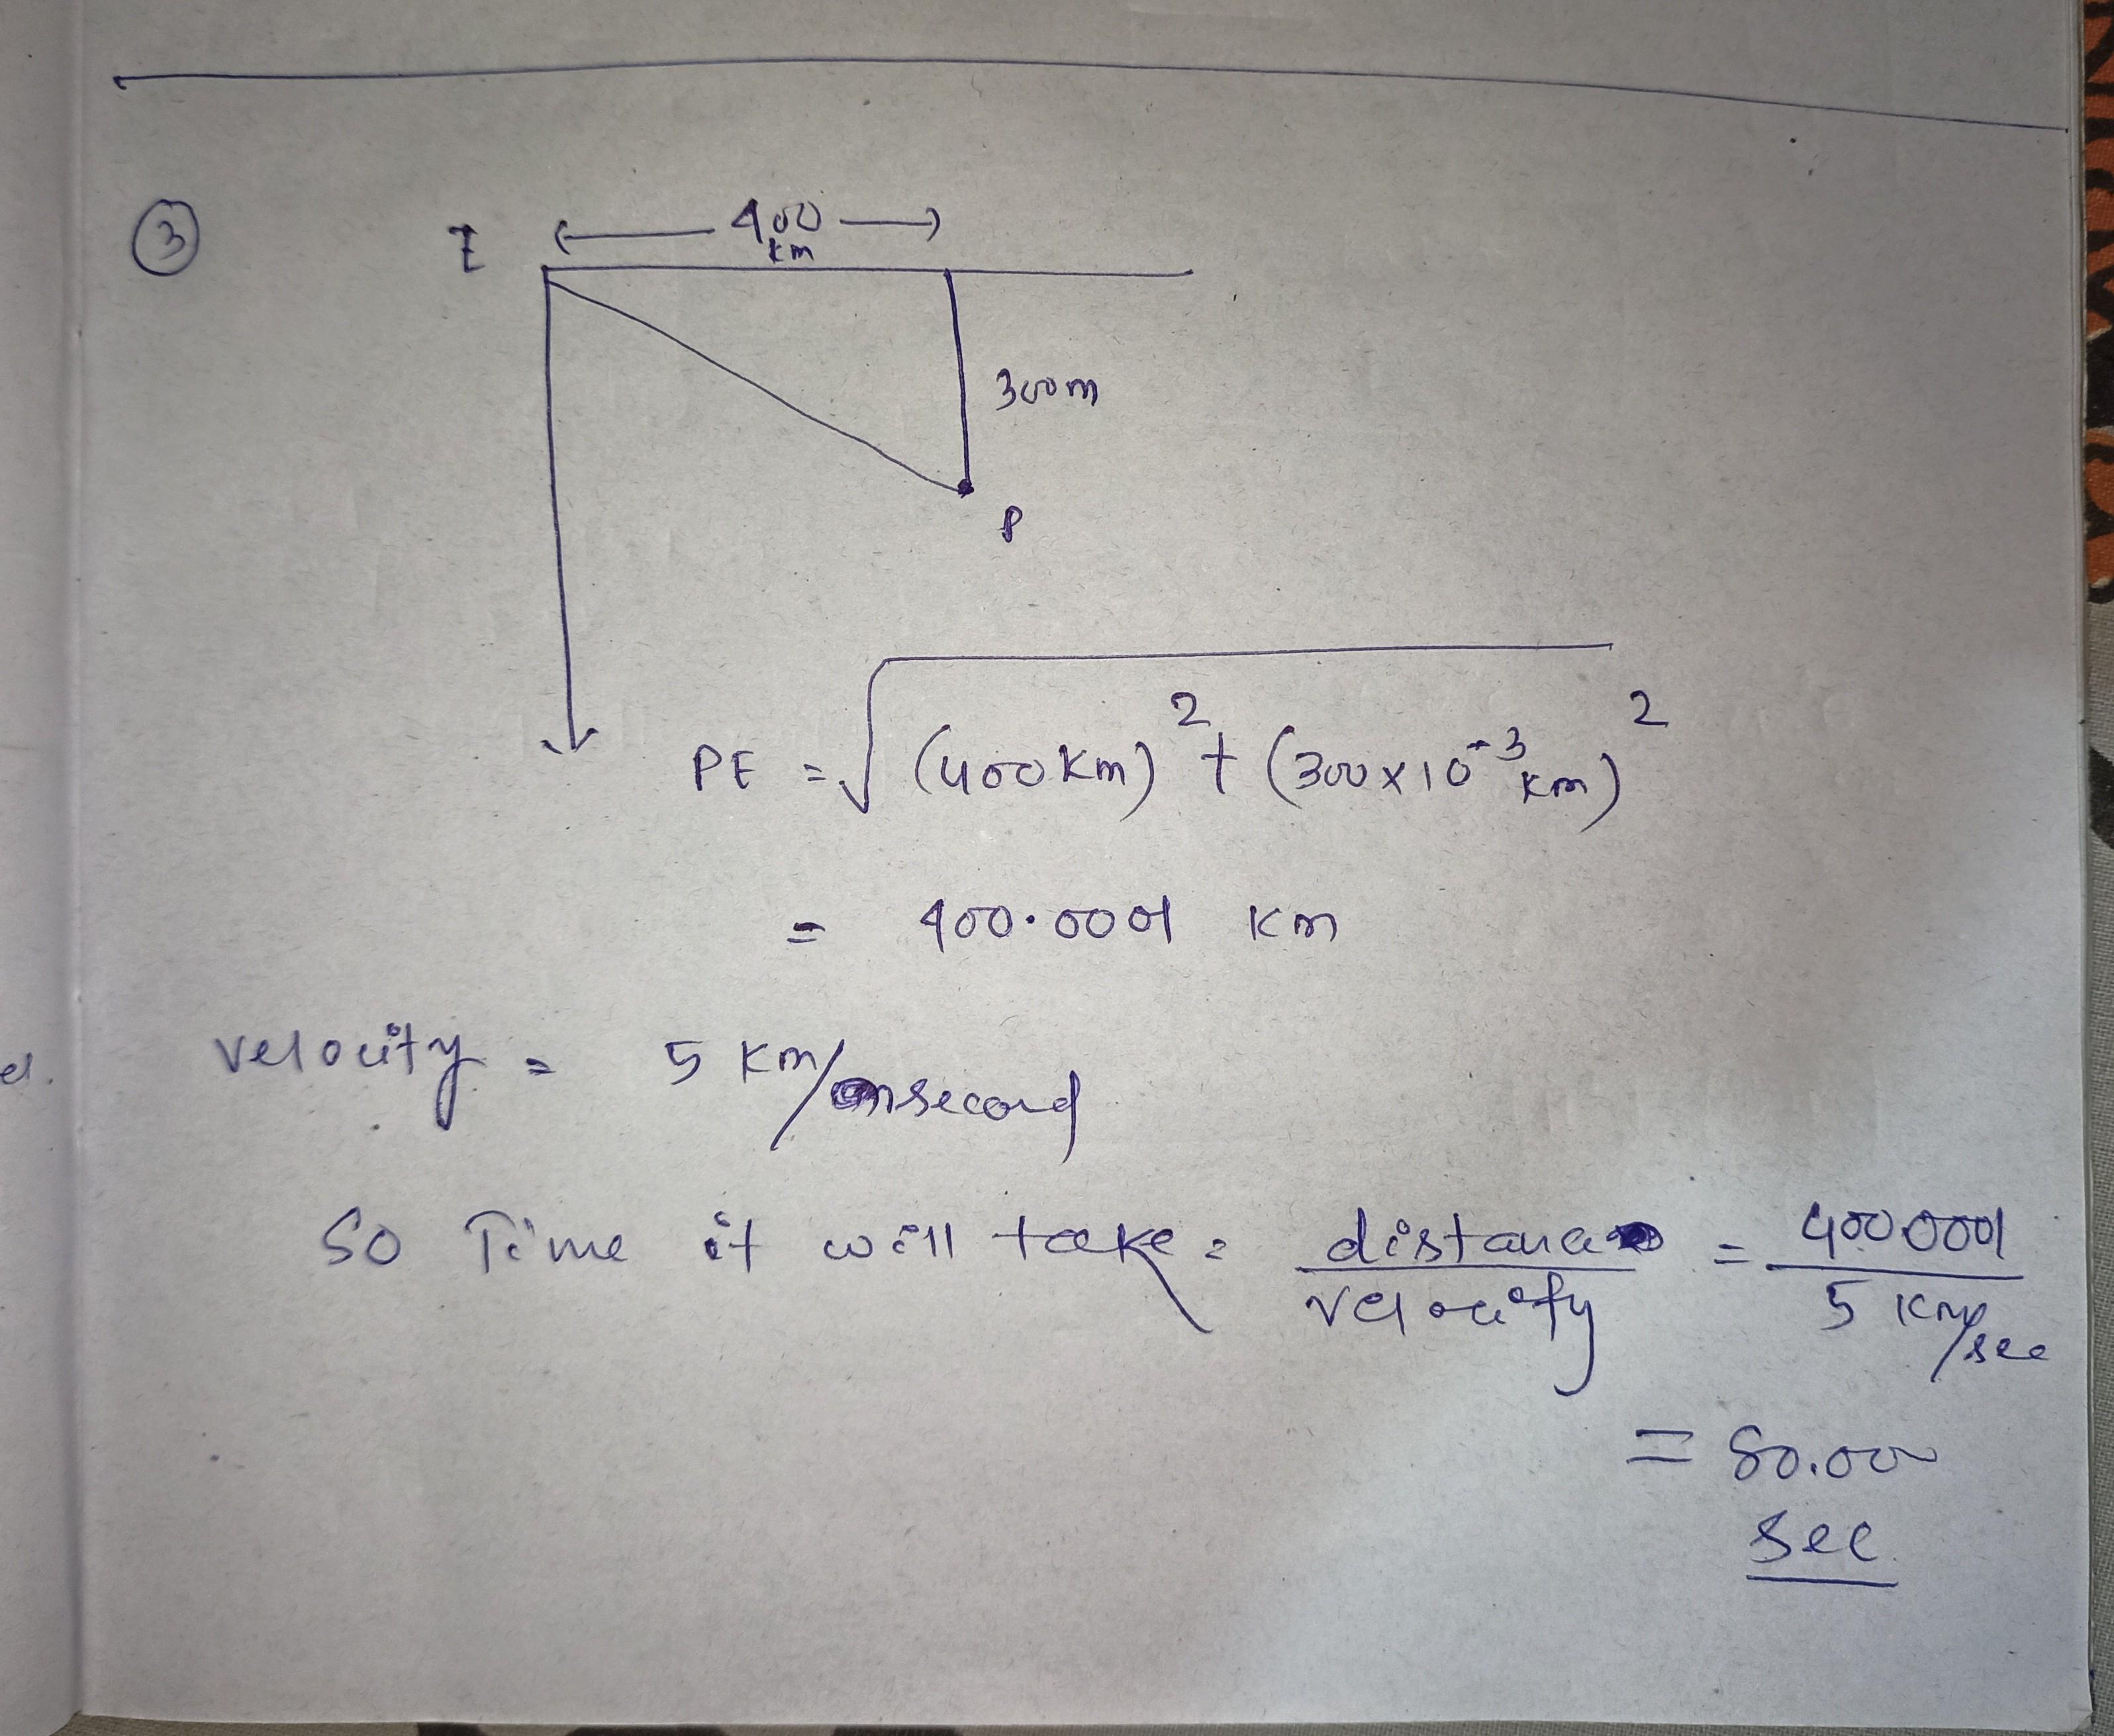 3
E
400
km
300m
P
PE = √(400 km)² + (300 x 10⁻³ km)²
= 400.0001 km
el.
velocity = 5 km/second
So Time it will take = distance/velocity = 400.0001/5 km/sec
= 80.00
sec